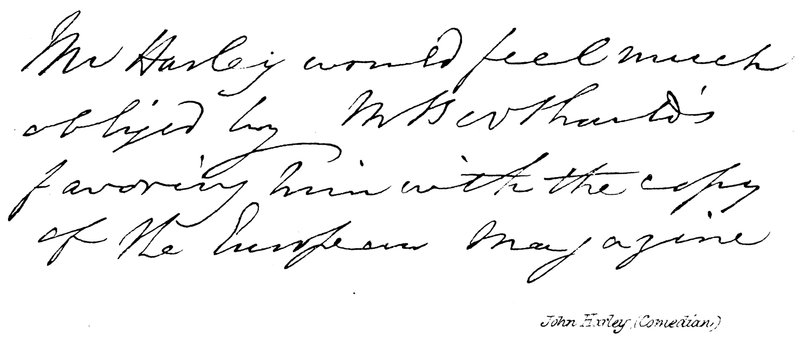 Mr Harley would feel much
obliged by Mr
favoring him with the copy
of the European Magazine
John Harley (Comedian)